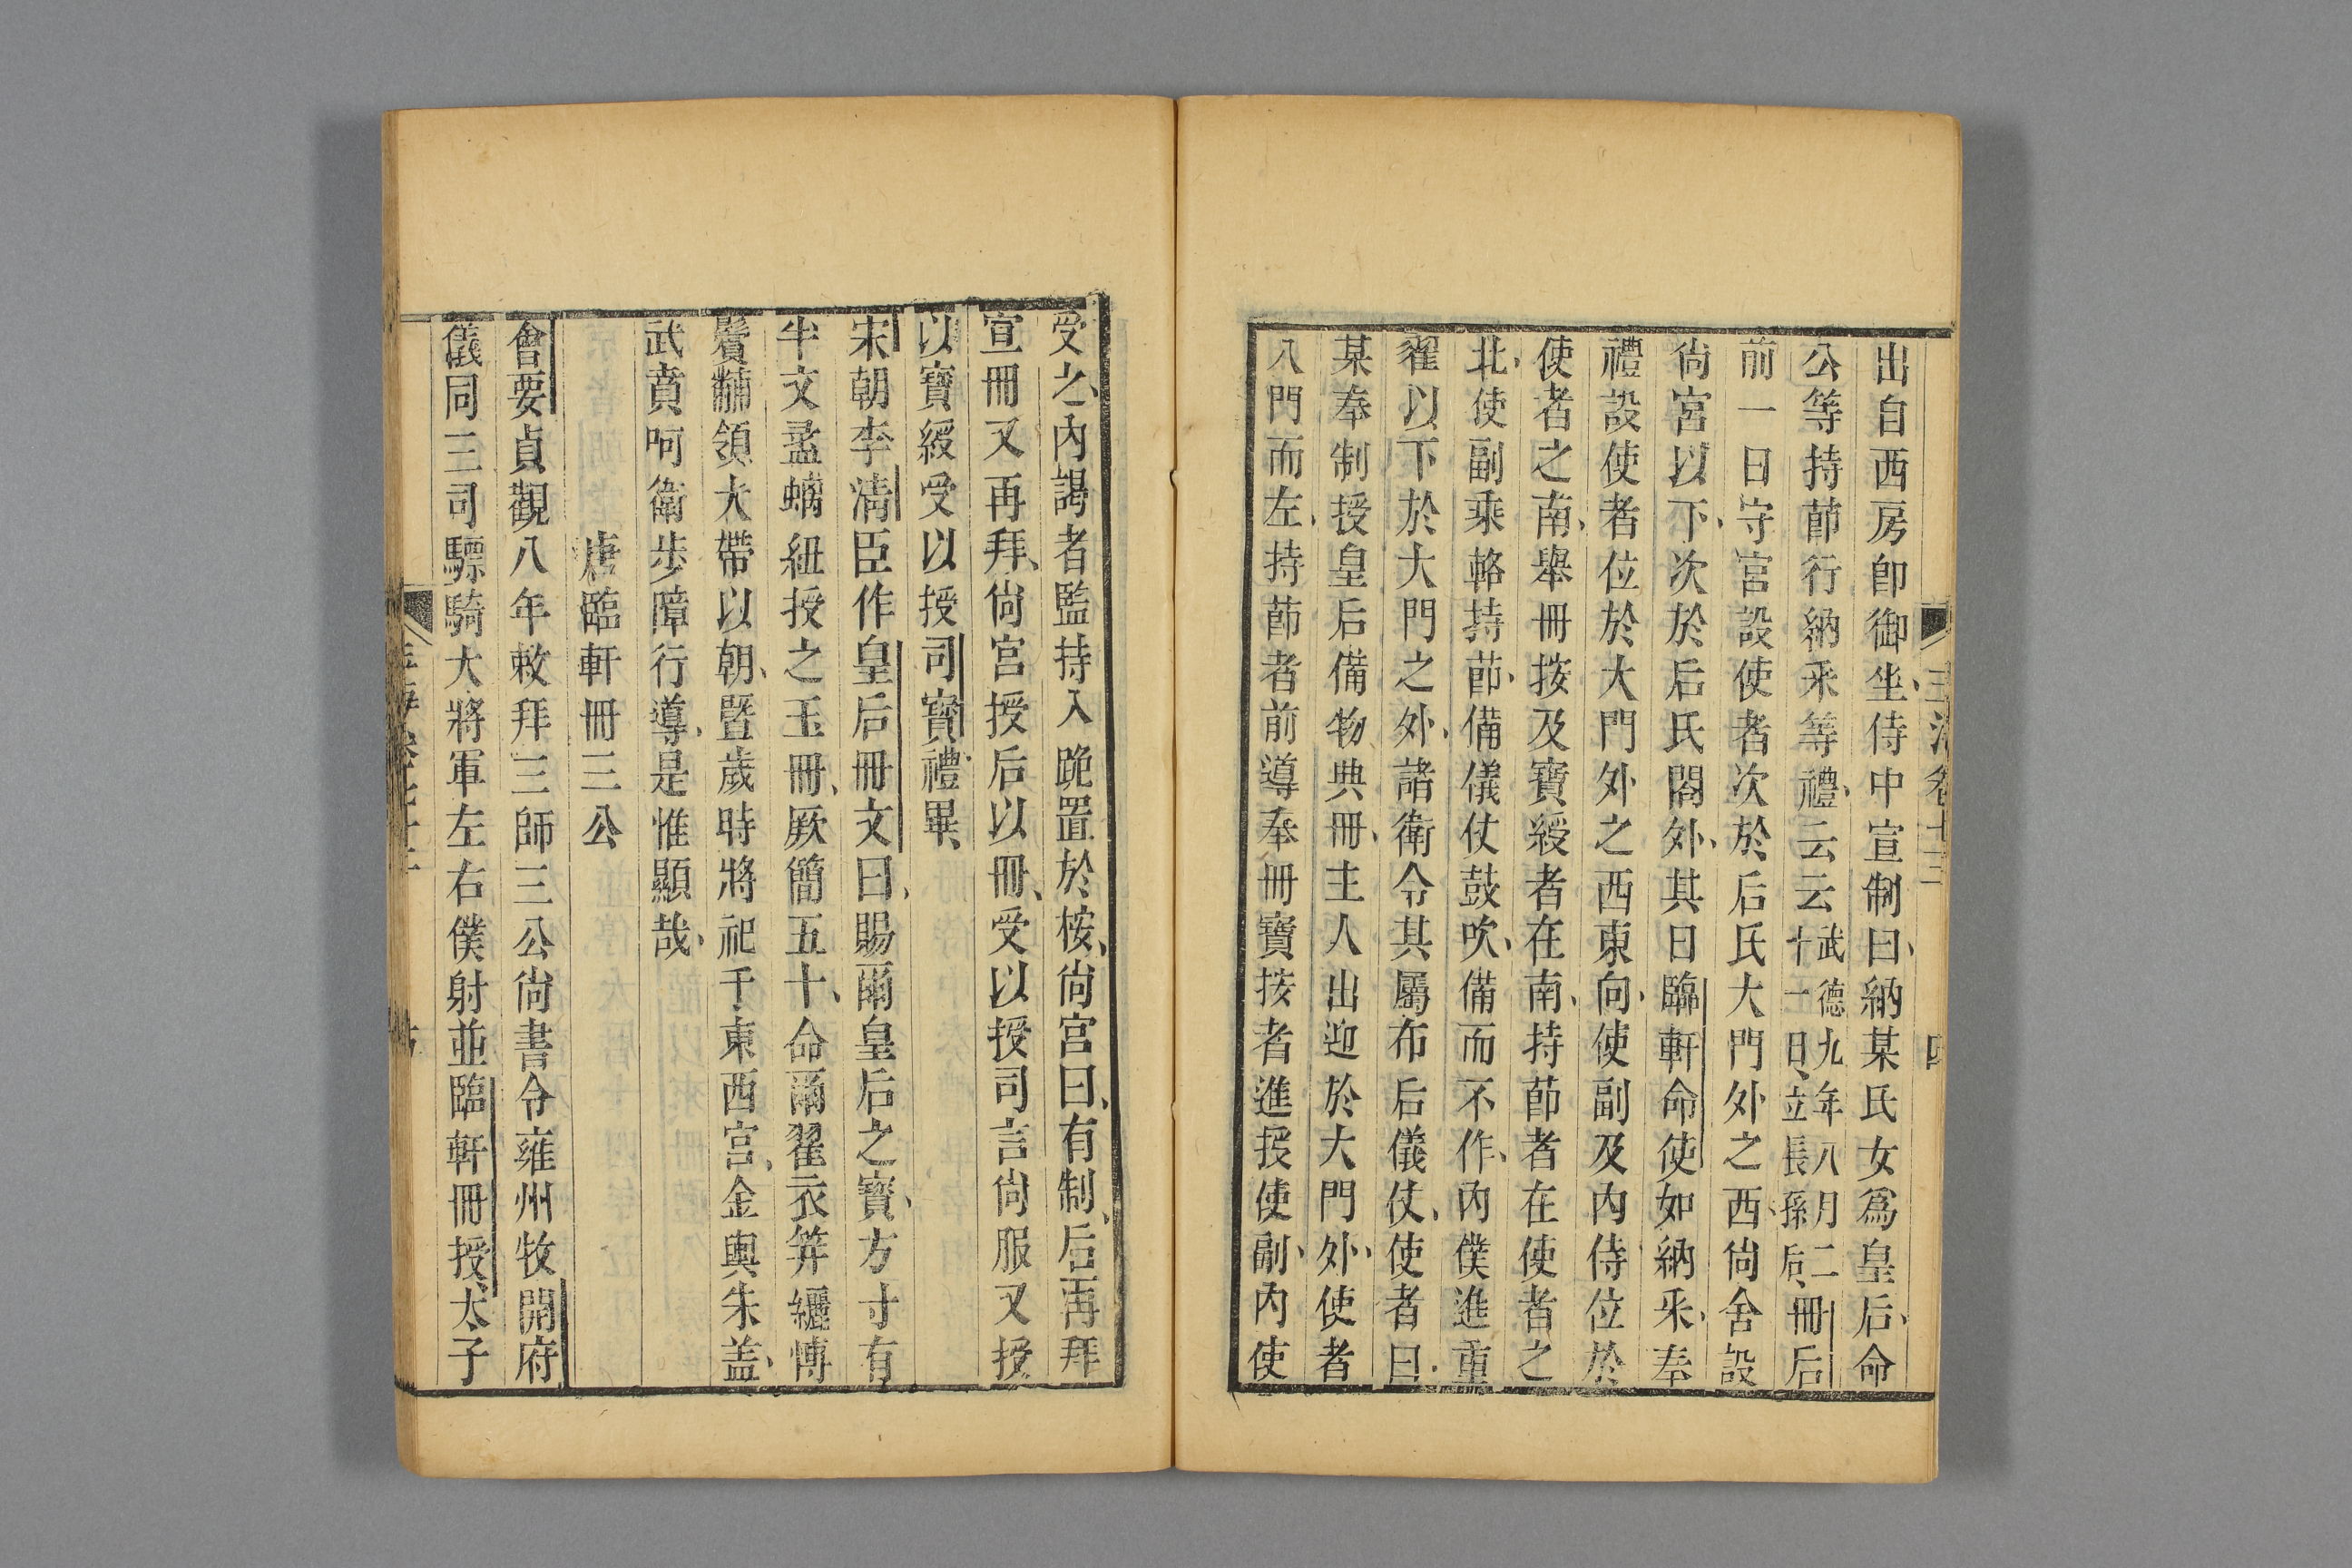 出自西房卽御坐侍中宣制曰納某氏女爲皇后命
公等持節行納采等禮云云武德九年八月二十一日立長孫后冊后
前一日守宮設使者次於后氏大門外之西尙舍設
尙宮以下次於后氏閤外其日臨軒命使如納采奉
禮設使者位於大門外之西東向使副及內侍位於
使者之南舉冊按及寶綬者在南持節者在使者之
北使副乘輅持節備儀仗鼓吹備而不作內僕進重
翟以下於大門之外諸衛令其屬布后儀仗使者曰
某奉制授皇后備物典冊主人出迎於大門外使者
入門而左持節者前導奉冊寶按者進授使副內使
受之內謁者監持入跪置於桉尙宮曰有制后再拜
宣冊又再拜尙宮授后以冊受以授司言尙服又授
以寶綬受以授司寶禮畢
宋朝李淸臣作皇后冊文曰賜爾皇后之寶方寸有
半文盝螭紐授之玉冊厥簡五十命爾翟衣笄纚博
鬢黼領大帶以朝曁歲時將祀于東西宮金輿朱盖
武賁呵衛步障行導是惟顯哉
唐臨軒冊三公
會要貞觀八年敕拜三師三公尙書令雍州牧開府
儀同三司驃騎大將軍左右僕射並臨軒冊授太子